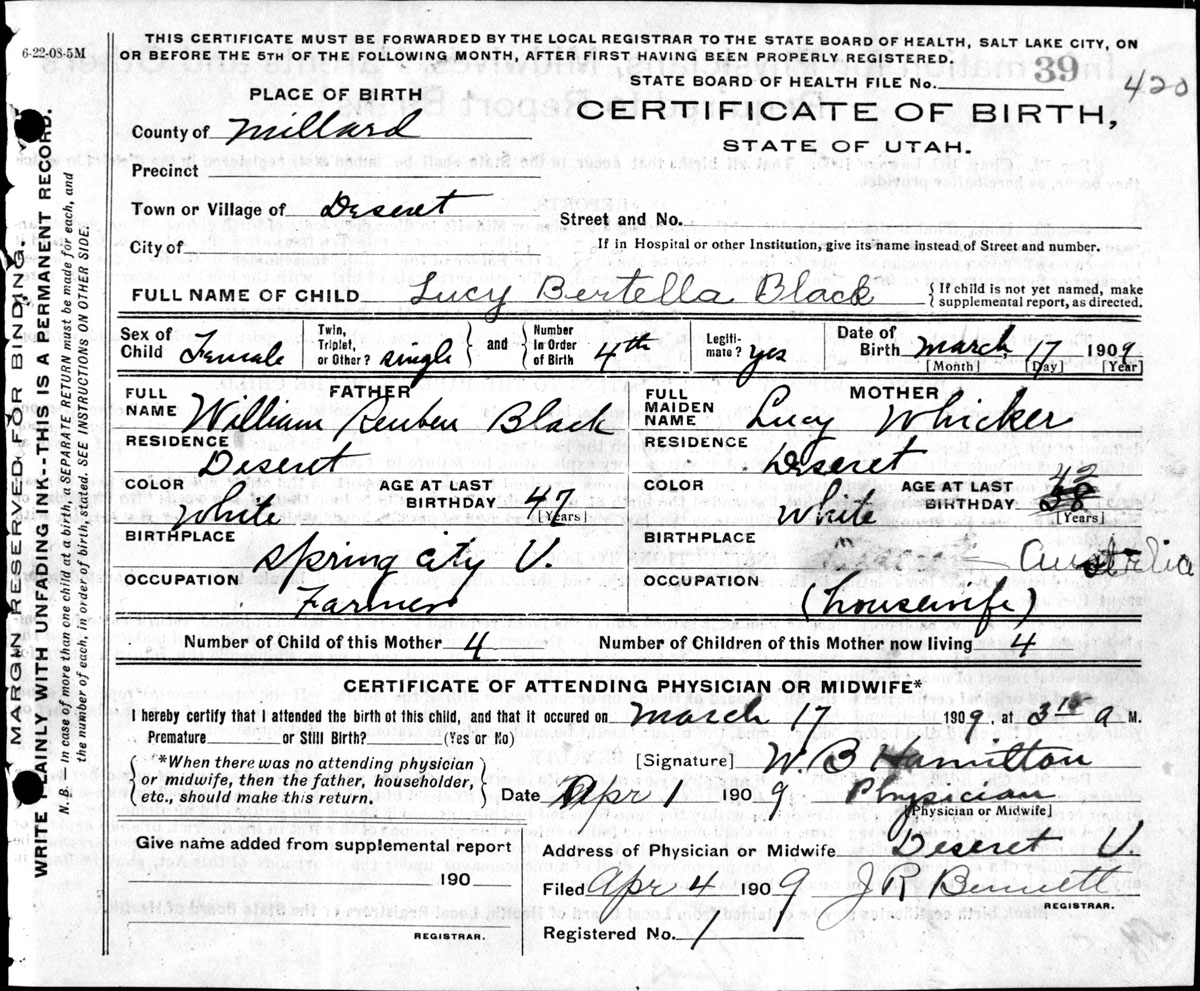 6-22-08-5M
THIS CERTIFICATE MUST BE FORWARDED BY THE LOCAL REGISTRAR TO THE STATE BOARD OF HEALTH, SALT LAKE CITY, ON
OR BEFORE THE 5TH OF THE FOLLOWING MONTH, AFTER FIRST HAVING BEEN PROPERLY REGISTERED.
STATE BOARD OF HEALTH FILE No. 39 420
PLACE OF BIRTH
CERTIFICATE OF BIRTH,
STATE OF UTAH.
County of Millard
Precinct
Town or Village of Deseret
Street and No.
City of
If in Hospital or other Institution, give its name instead of Street and number.
FULL NAME OF CHILD Lucy Bertella Black {If child is not yet named, make supplemental report, as directed.
Sex of Child Female Twin, Triplet, or Other? single } and { Number In Order of Birth 4th Legitimate? yes Date of Birth March 17 1909
[Month] [Day] [Year]
FATHER
FULL NAME William Reuben Black
RESIDENCE
Deseret
COLOR White AGE AT LAST BIRTHDAY 47 [Years]
BIRTHPLACE
Spring City U.
OCCUPATION
Farmer
MOTHER
FULL MAIDEN NAME Lucy Whicker
RESIDENCE
Deseret
COLOR White AGE AT LAST BIRTHDAY 42 [Years]
BIRTHPLACE
Australia
OCCUPATION
(housewife)
Number of Child of this Mother 4 Number of Children of this Mother now living 4
CERTIFICATE OF ATTENDING PHYSICIAN OR MIDWIFE*
I hereby certify that I attended the birth ot this child, and that it occured on March 17 1909, at 3 10 a M.
Premature or Still Birth? (Yes or No)
*When there was no attending physician
or midwife, then the father, householder,
etc., should make this return.
[Signature] W. B Hamilton
Date Apr 1 1909 Physician
[Physician or Midwife]
Give name added from supplemental report
190
REGISTRAR.
Address of Physician or Midwife Deseret U.
Filed Apr 4 1909 J R Bennett
REGISTRAR.
Registered No. 1
MARGIN RESERVED FOR BINDING
WRITE PLAINLY WITH UNFADING INK--THIS IS A PERMANENT RECORD.
N. B.— In case of more than one child at a birth, a SEPARATE RETURN must be made for each, and
the number of each, in order of birth, stated. SEE INSTRUCTIONS ON OTHER SIDE.